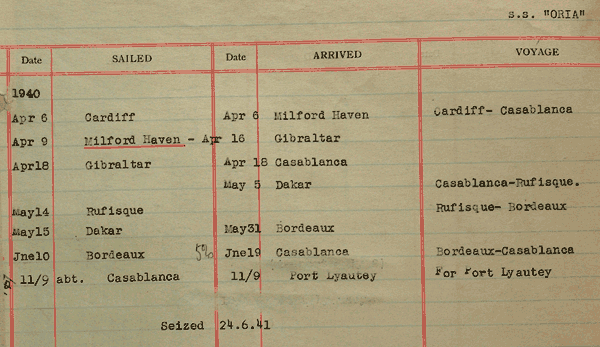 s.s. "ORIA"
Date SAILED Date ARRIVED VOYAGE
1940
Apr 6 Cardiff Apr 6 Milford Haven Cardiff- Casablanca
Apr 9 Milford Haven - Apr 16 Gibraltar
Apr18 Gibraltar Apr 18 Casablanca
May 5 Dakar Casablanca-Rufisque.
May14 Rufisque Rufisque- Bordeaux
May15 Dakar May31 Bordeaux
Jne10 Bordeaux Jne19 Casablanca Bordeaux-Casablanca
11/9 abt. Casablanca 11/9 Port Lyautey For Port Lyautey
Seized 24.6.41